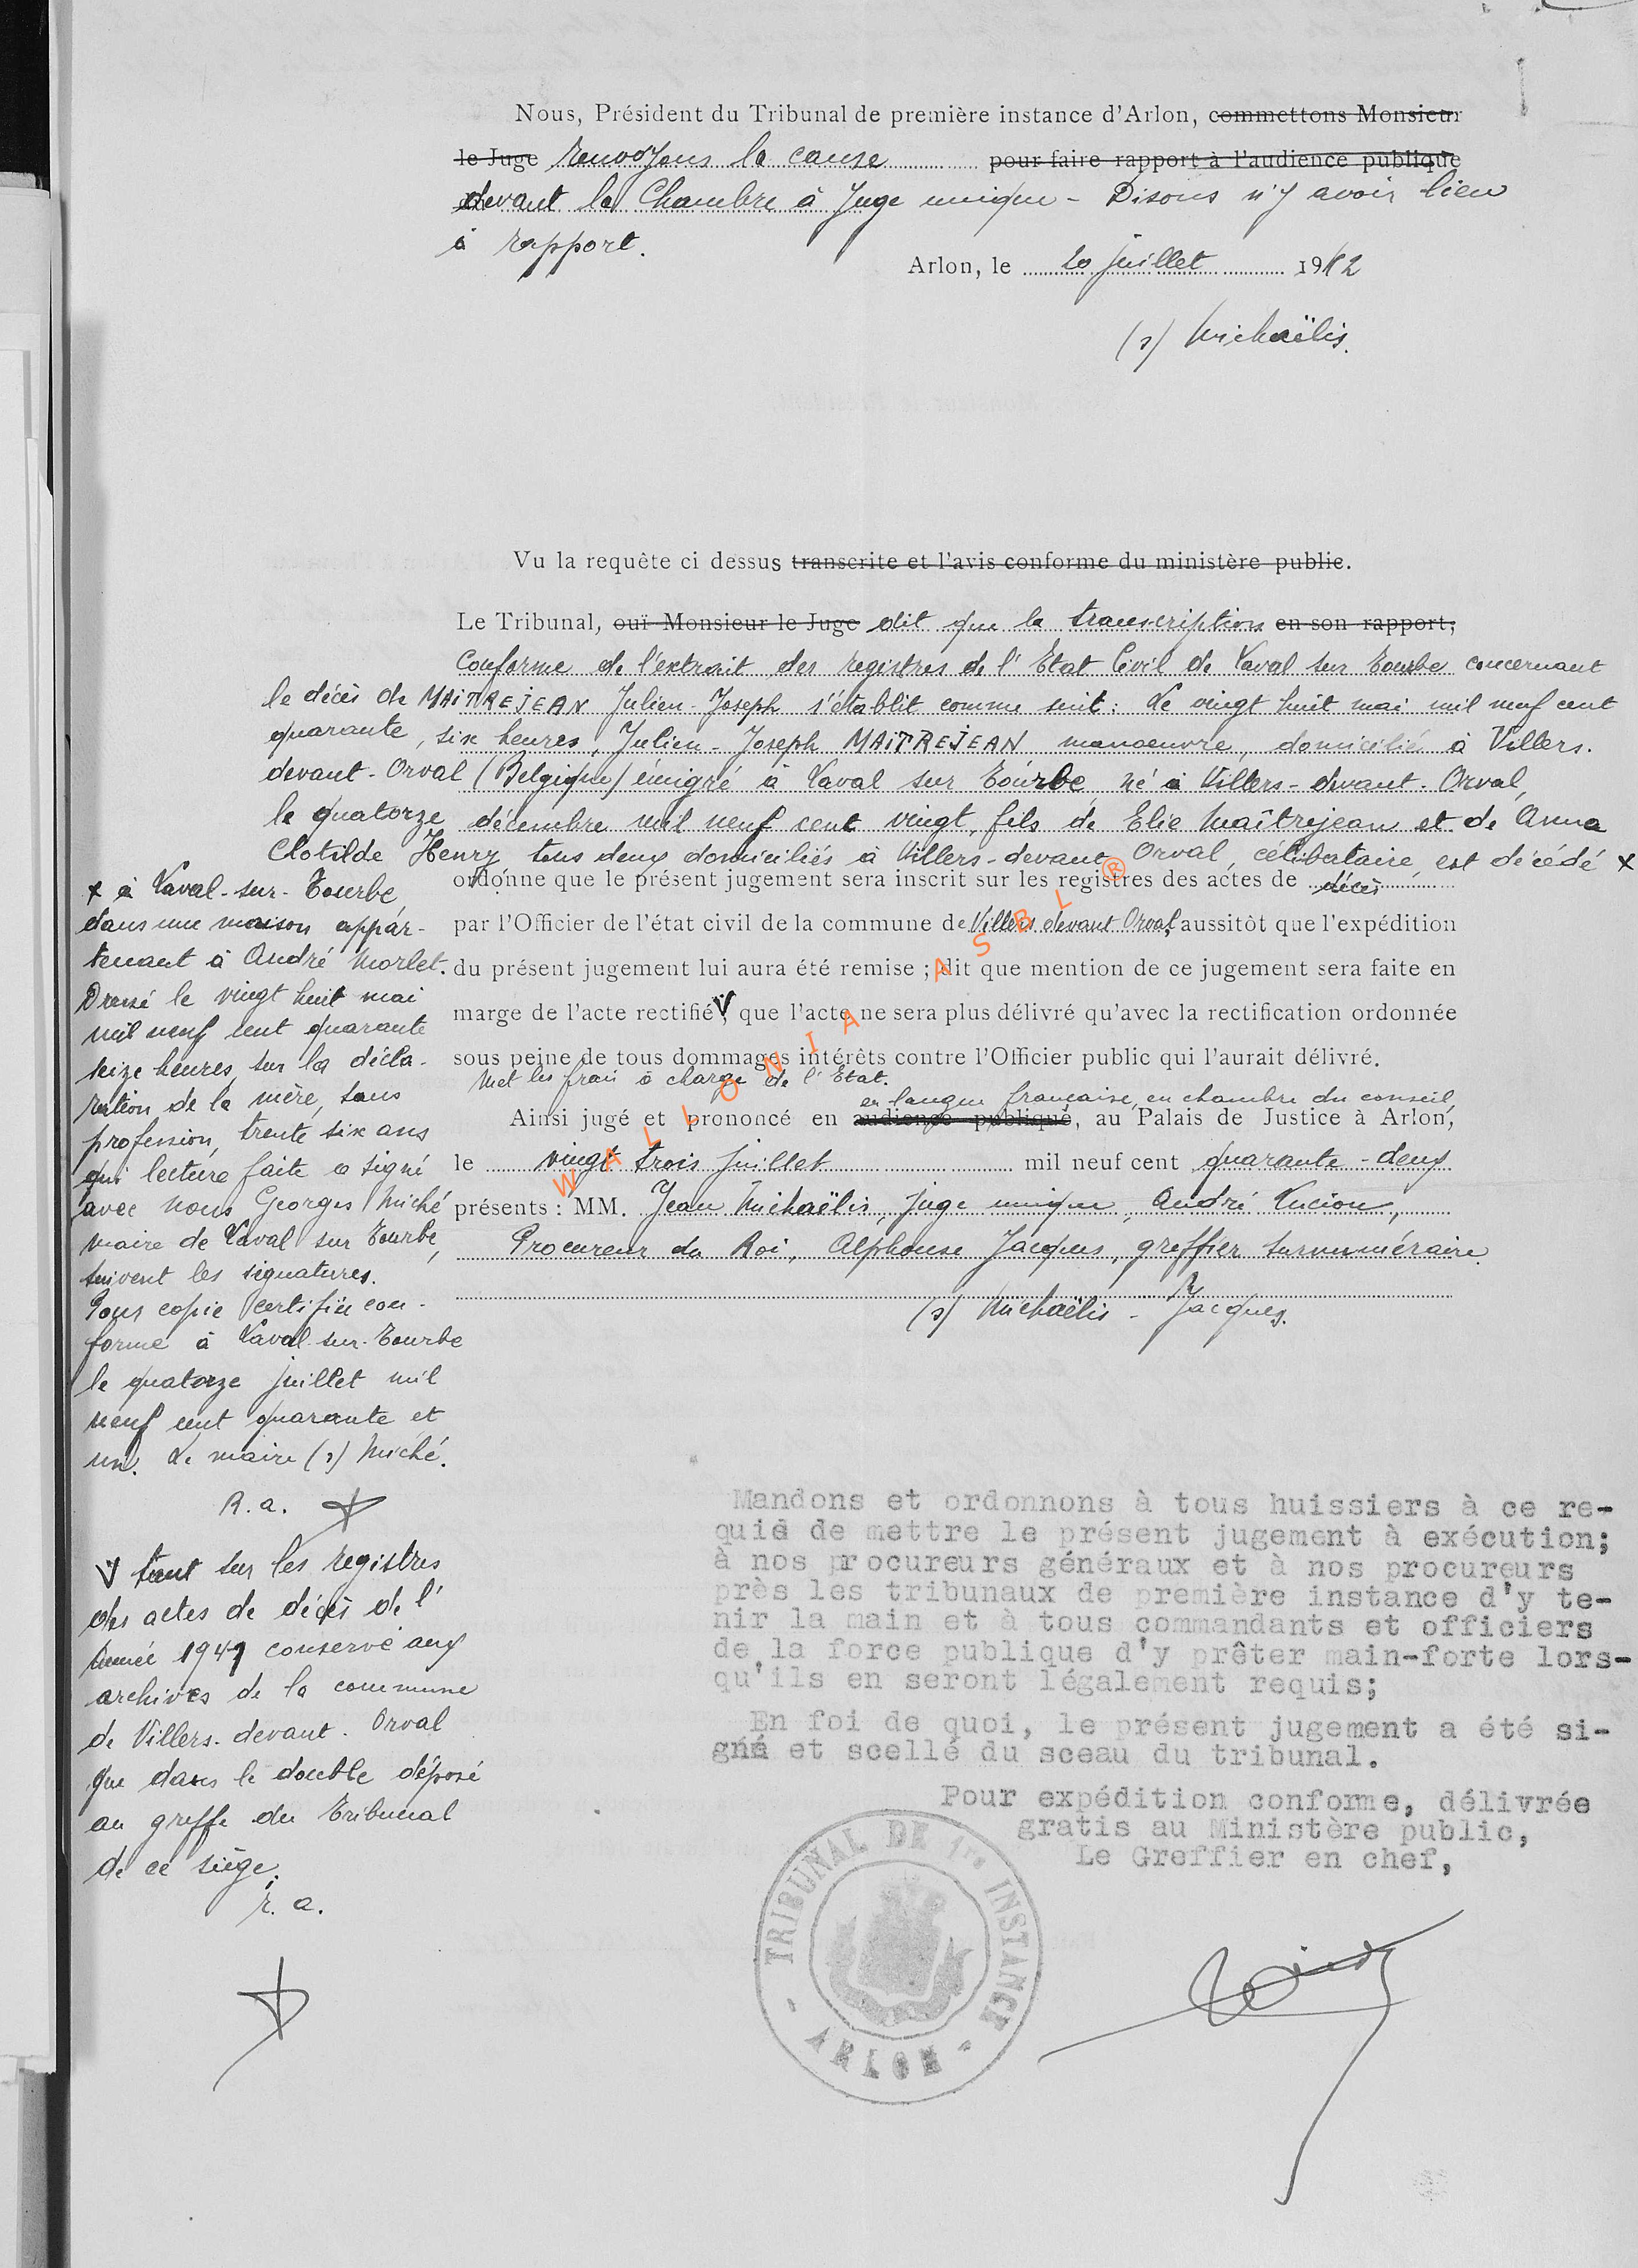 Nous, Président du Tribunal de première instance d'Arlon, commettons Monsieur
le Juge renvoyons la cause pour faire rapport à l'audience publique
devant la Chambre à Juge unique - Disons n'y avoir lieu
à rapport.
Arlon, le 20 juillet 1942
(s) Michaëlis.
Vu la requête ci dessus transcrite et l'avis conforme du ministère public.
Le Tribunal, ouï Monsieur le Juge dit que la transcription en son rapport;
conforme de l'extrait des registres de l'Etat Civil de Laval sur Tourbe concernant
le décès de MAITREJEAN Julien-Joseph s'établit comme suit: Le vingt huit mai mil neuf cent
quarante, six heures, Julien-Joseph MAITREJEAN manoeuvre, domicilié à Villers-
devant-Orval (Belgique) émigré à Laval sur Tourbe né à Villers-devant-Orval,
le quatorze décembre mil neuf cent vingt, fils de Elie Maîtrejean et de Anna
Clotilde Henry tous deux domiciliés à Villers-devant Orval, célibataire, est décédé x
ordonne que le présent jugement sera inscrit sur les registres des actes de décès
par l'Officier de l'état civil de la commune de Villers devant Orval, aussitôt que l'expédition
du présent jugement lui aura été remise ; dit que mention de ce jugement sera faite en
marge de l'acte rectifié V, que l'acte ne sera plus délivré qu'avec la rectification ordonnée
sous peine de tous dommages intérêts contre l'Officier public qui l'aurait délivré.
Met les frais à charge de l'Etat.
en langue française, en chambre du conseil,
Ainsi jugé et prononcé en audience publique, au Palais de Justice à Arlon,
le vingt trois juillet mil neuf cent quarante-deux
présents : MM. Jean Michaëlis, juge unique, André Lucion,
Procureur du Roi, Alphonse Jacques, greffier surnuméraire.
(s) Michaëlis - Jacques.
x à Laval-sur-Tourbe,
dans une maison appar-
tenant à André Morlet.
Dressé le vingt huit mai
mil neuf cent quarante
seize heures, sur la décla-
ration de la mère, sans
profession, trente six ans
qui lecture faite a signé
avec nous Georges Miché
maire de Laval sur Tourbe,
suivent les signatures.
Pour copie certifiée con-
forme à Laval-sur-Tourbe
le quatorze juillet mil
neuf cent quarante et
un. Le maire (s) Miché.
R.a.
V tant sur les registres
des actes de décès de l'
année 1941 conservé aux
archives de la commune
de Villers-devant-Orval
que dans le double déposé
au greffe du Tribunal
de ce siège.
r.a.
Mandons et ordonnons à tous huissiers à ce re-
quis de mettre le présent jugement à exécution;
à nos procureurs généraux et à nos procureurs
près les tribunaux de première instance d'y te-
nir la main et à tous commandants et officiers
de la force publique d'y prêter main-forte lors-
qu'ils en seront légalement requis;
En foi de quoi, le présent jugement a été si-
gné et scellé du sceau du tribunal.
Pour expédition conforme, délivrée
gratis au Ministère public,
Le Greffier en chef,
TRIBUNAL DE 1re INSTANCE
- ARLON -
WALLONIA ASBL ®